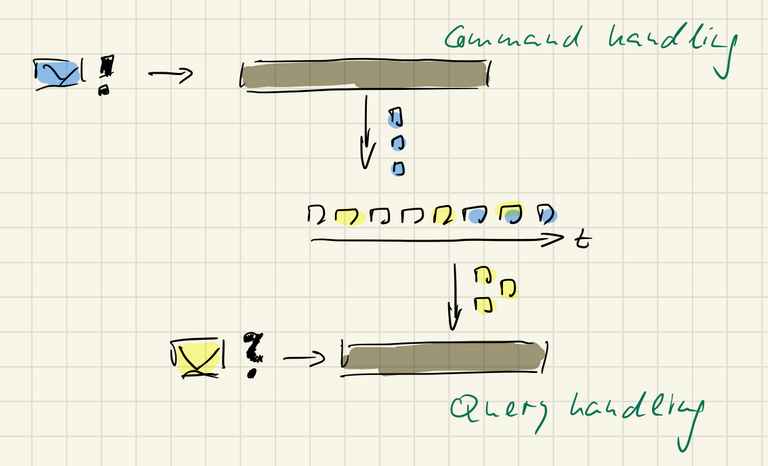 Command handling
!
t
?
Query handling